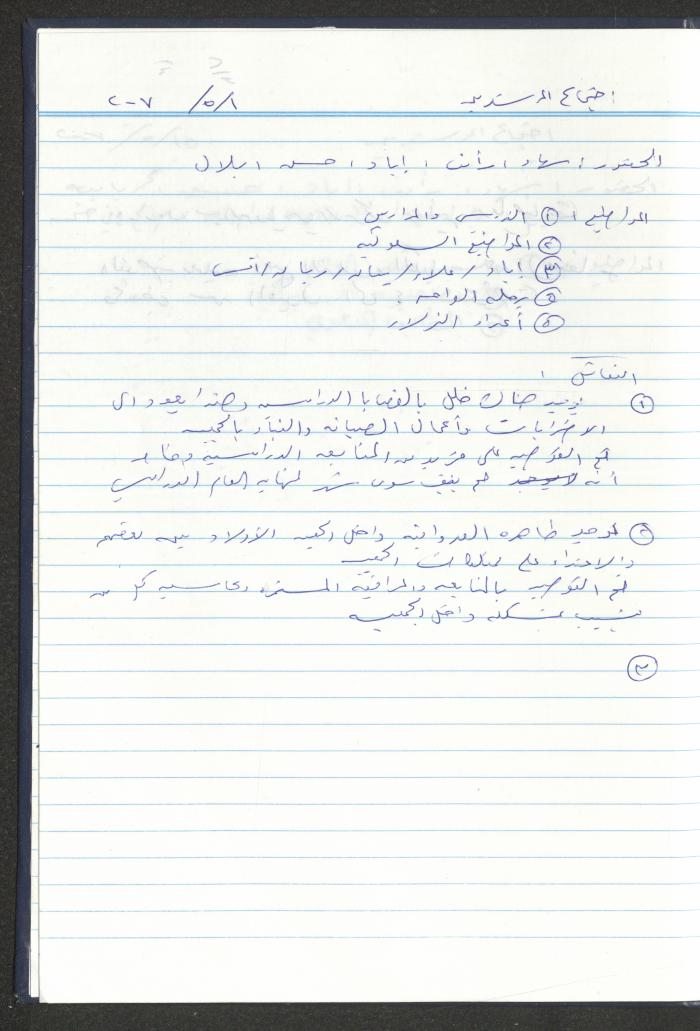 اجتماع المرشدين ٨/٥/٢٠٠٧
الحضور: سهاد، رأفت، إياد، حسن، بلال
المواضيع: ① الدريس والمدارس
② المواضيع السلوكية
③ إياد/علاء/
⑤ رحلة الواحة
⑤ أعداد الزوار
النقاش:
① يوجد هناك خلل بالقضايا الدراسية وهذا يعود الى
الاضرابات وأعمال الصيانة والبناء بالجمعية
تم التوصية على مزيد من المتابعة الدراسية وخاصة
أنه لم يبقى سوى شهر لنهاية العام الدراسي
② توجد ظاهرة العدوانية داخل الجمعية الأولاد بين بعضهم
والاعتداء على ممتلكات الجمعية
تم التوصية بالمتابعة والمراقبة المستمرة ومحاسبة كل من
يتسبب بمشكلة داخل الجمعية
③